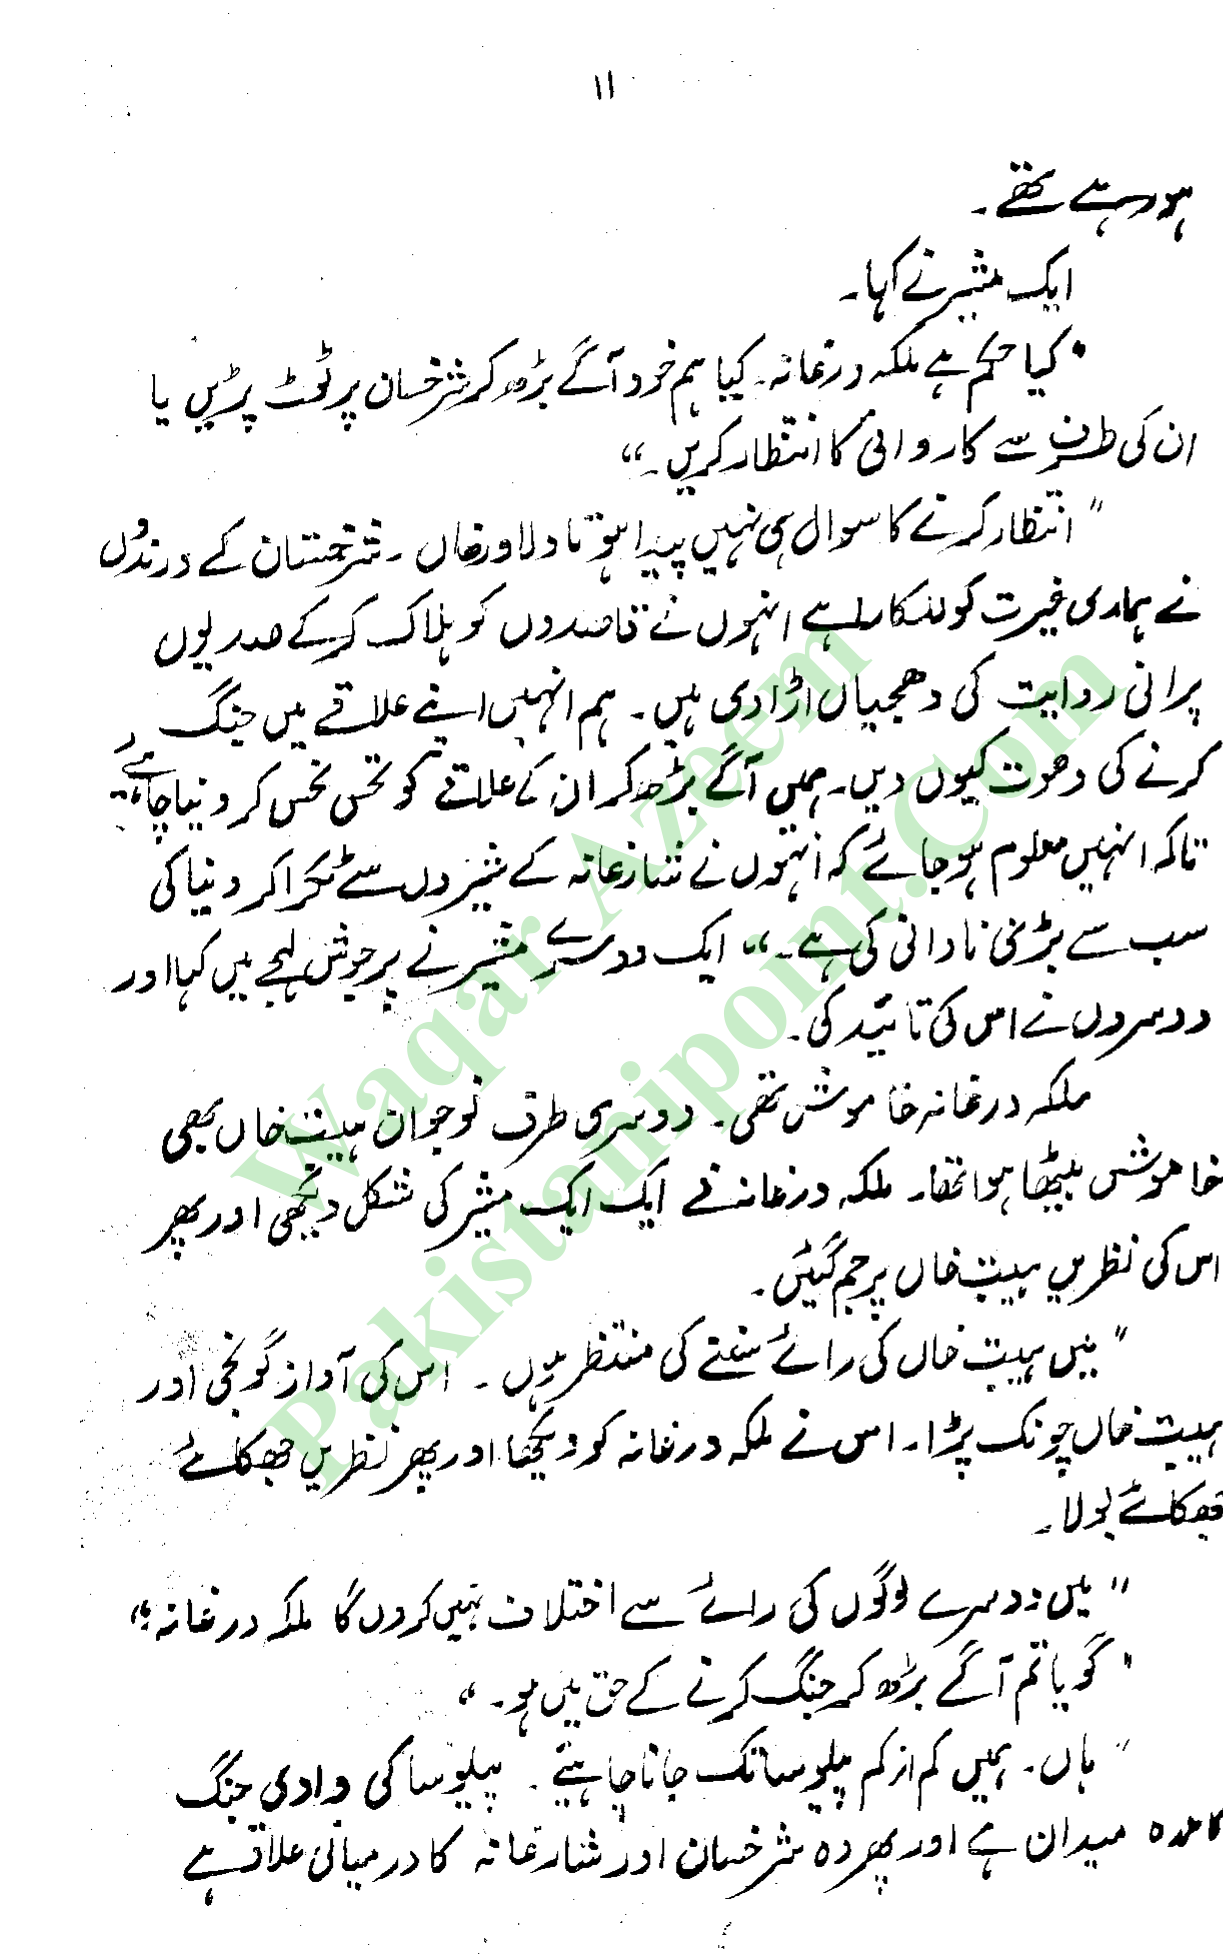 ۱۱
ہو رہے تھے۔
ایک مشیر نے کہا۔
"کیا حکم ہے ملکہ درغانہ۔ کیا ہم خود آگے بڑھ کر شرخسان پر ٹوٹ پڑیں یا
ان کی طرف سے کاروائی کا انتظار کریں۔"
"انتظار کرنے کا سوال ہی نہیں پیدا ہوتا دلاور خاں۔ شرخستان کے درندوں
نے ہماری غیرت کو للکارا ہے انہوں نے قاصدوں کو ہلاک کر کے صدیوں
پرانی روایت کی دھجیاں اڑا دی ہیں۔ ہم انہیں اپنے علاقے میں جنگ
کرنے کی دعوت کیوں دیں۔ ہمیں آگے بڑھ کر ان کے علاقے کو تحس نحس کر دینا چاہیے
تاکہ انہیں معلوم ہو جائے کہ انہوں نے شارغانہ کے شیروں سے ٹکرا کر دنیا کی
سب سے بڑی نادانی کی ہے۔" ایک دوسرے مشیر نے پرجوش لہجے میں کہا اور
دوسروں نے اس کی تائید کی۔
ملکہ درغانہ خاموش تھی۔ دوسری طرف نوجوان ہیبت خاں بھی
خاموش بیٹھا ہوا تھا۔ ملکہ درغانہ نے ایک ایک مشیر کی شکل دیکھی اور پھر
اس کی نظریں ہیبت خاں پر جم گئیں۔
"میں ہیبت خاں کی رائے سننے کی منتظر ہوں۔ اس کی آواز گونجی اور
ہیبت خاں چونک پڑا۔ اس نے ملکہ درغانہ کو دیکھا اور پھر نظریں جھکائے
جھکائے بولا۔
"میں دوسرے لوگوں کی رائے سے اختلاف نہیں کروں گا ملکہ درغانہ؛"
"گویا تم آگے بڑھ کر جنگ کرنے کے حق میں ہو۔"
"ہاں۔ ہمیں کم از کم پیلوسا تک جانا چاہئیے۔ پیلوسا کی وادی جنگ
کا عمدہ میدان ہے اور پھر وہ شرخسان اور شارغانہ کا درمیانی علاقہ ہے
Waqar Azeem
Pakistanipoint.Com